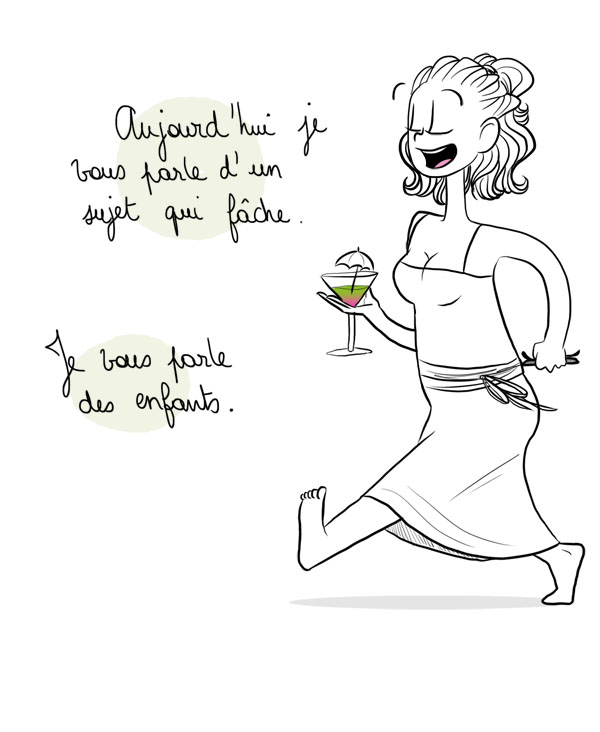 Aujourd'hui je
vous parle d'un
sujet qui fâche.
Je vous parle
des enfants.